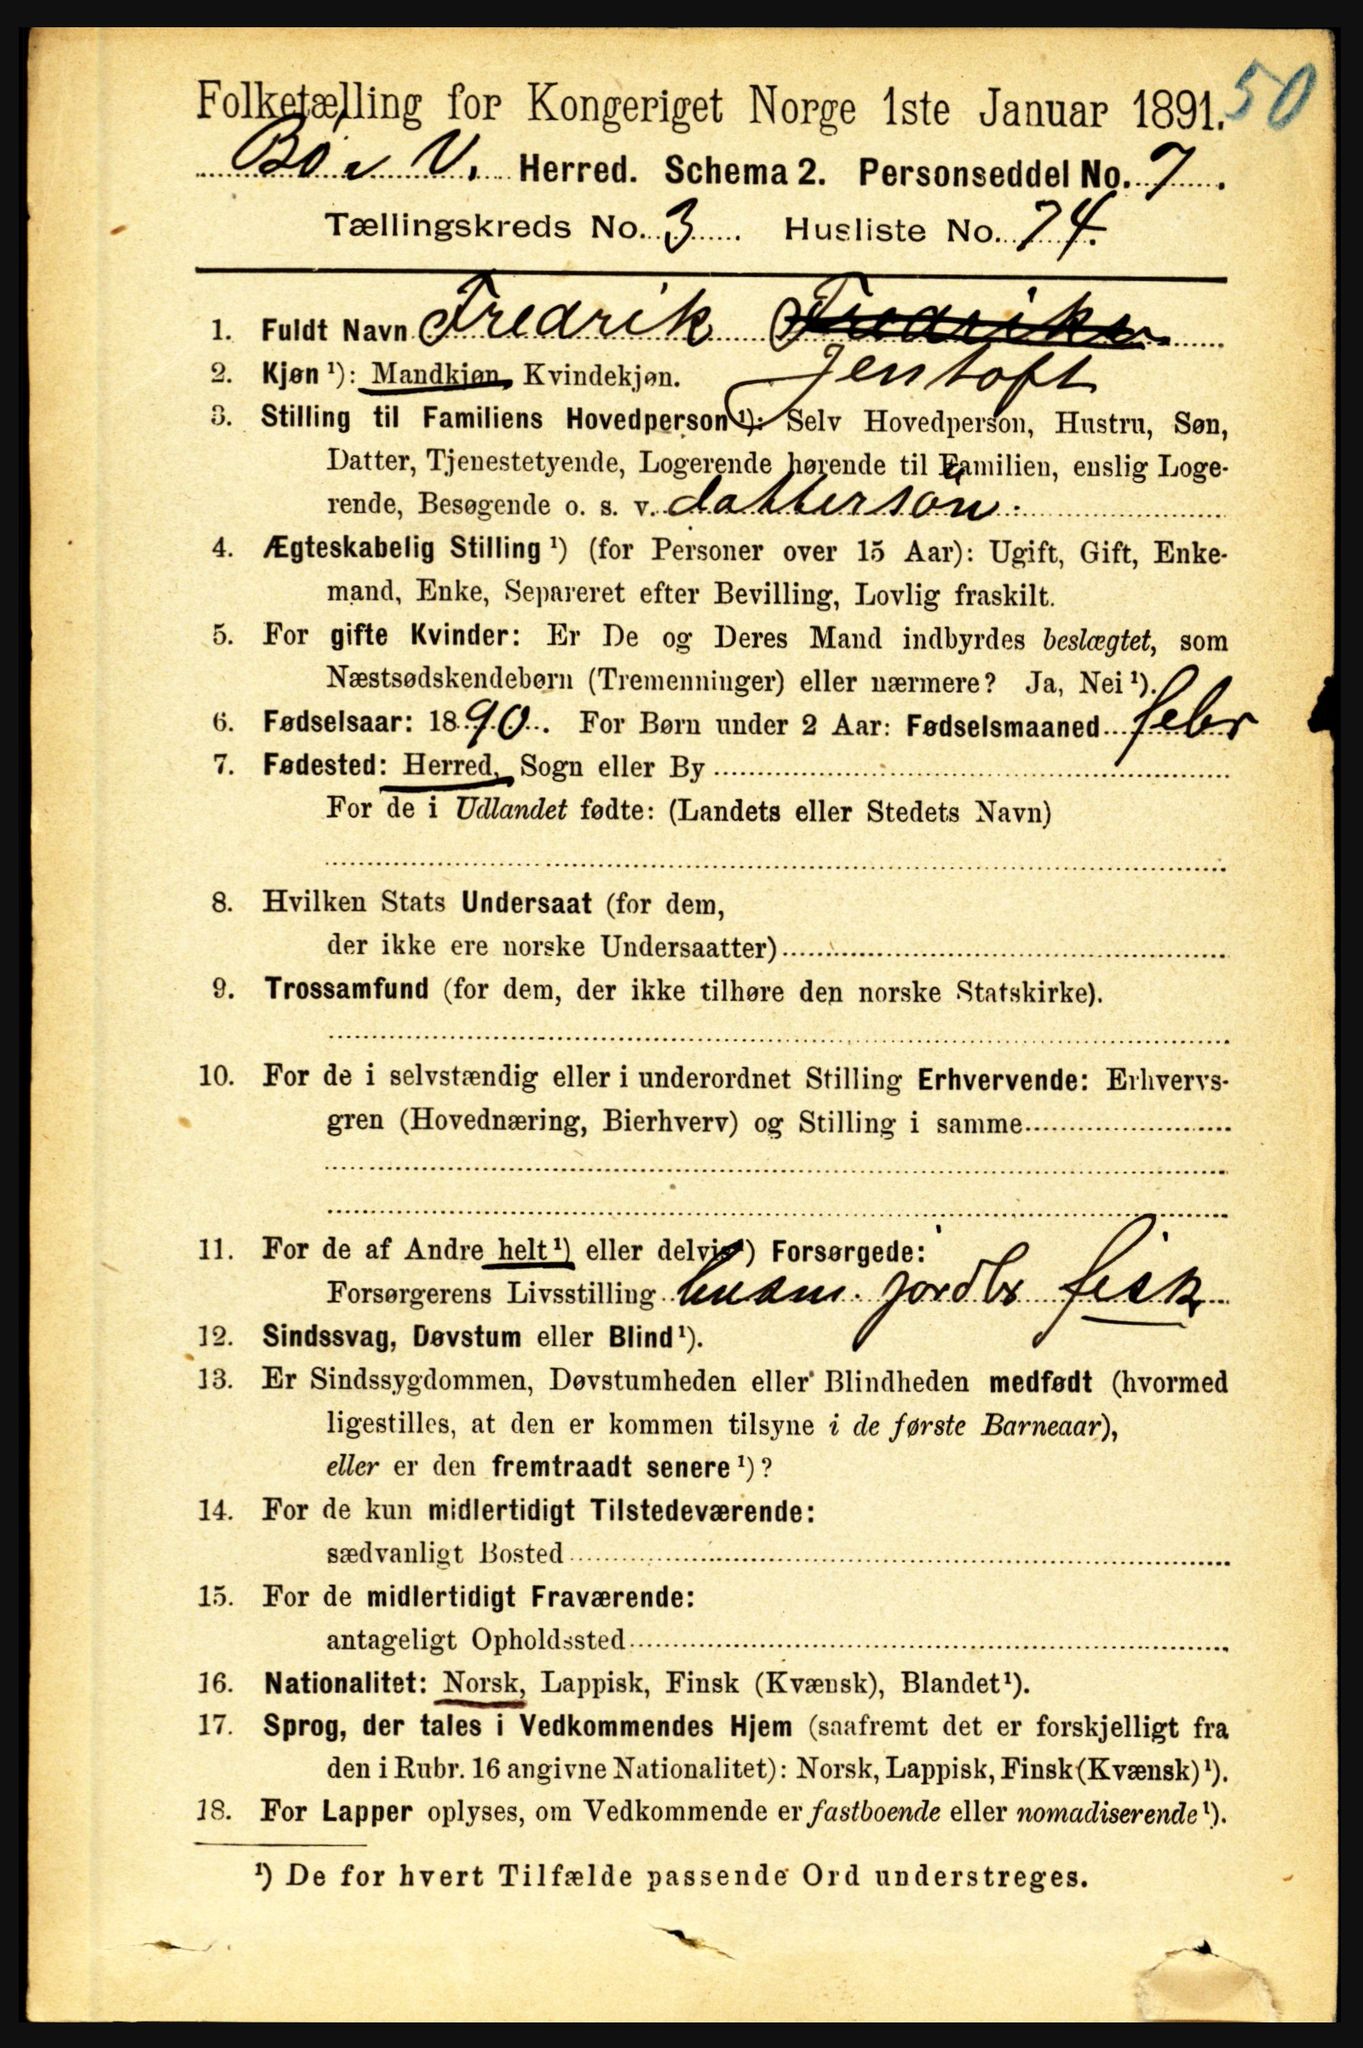 50
Folketælling for Kongeriget Norge 1ste Januar 1891.
Bø i V. Herred. Schema 2. Personseddel No. 7.
Tællingskreds No. 3 Husliste No. 74.
1. Fuldt Navn Fredrik Fredriks.
Jentoft
2. Kjøn ¹): Mandkjøn, Kvindekjøn.
3. Stilling til Familiens Hovedperson ¹): Selv Hovedperson, Hustru, Søn,
Datter, Tjenestetyende, Logerende hørende til Familien, enslig Loge-
rende, Besøgende o. s. v. dattersøn.
4. Ægteskabelig Stilling ¹) (for Personer over 15 Aar): Ugift, Gift, Enke-
mand, Enke, Separeret efter Bevilling, Lovlig fraskilt.
5. For gifte Kvinder: Er De og Deres Mand indbyrdes beslægtet, som
Næstsødskendebørn (Tremenninger) eller nærmere? Ja, Nei ¹).
6. Fødselsaar: 1890. For Børn under 2 Aar: Fødselsmaaned febr
7. Fødested: Herred, Sogn eller By
For de i Udlandet fødte: (Landets eller Stedets Navn)
8. Hvilken Stats Undersaat (for dem,
der ikke ere norske Undersaatter)
9. Trossamfund (for dem, der ikke tilhøre den norske Statskirke).
10. For de i selvstændig eller i underordnet Stilling Erhvervende: Erhvervs-
gren (Hovednæring, Bierhverv) og Stilling i samme
11. For de af Andre helt ¹) eller delvis ¹) Forsørgede:
Forsørgerens Livsstilling husm. jordbr fisk
12. Sindssvag, Døvstum eller Blind ¹).
13. Er Sindssygdommen, Døvstumheden eller Blindheden medfødt (hvormed
ligestilles, at den er kommen tilsyne i de første Barneaar),
eller er den fremtraadt senere ¹)?
14. For de kun midlertidigt Tilstedeværende:
sædvanligt Bosted
15. For de midlertidigt Fraværende:
antageligt Opholdssted
16. Nationalitet: Norsk, Lappisk, Finsk (Kvænsk), Blandet ¹).
17. Sprog, der tales i Vedkommendes Hjem (saafremt det er forskjelligt fra
den i Rubr. 16 angivne Nationalitet): Norsk, Lappisk, Finsk (Kvænsk) ¹).
18. For Lapper oplyses, om Vedkommende er fastboende eller nomadiserende ¹).
¹) De for hvert Tilfælde passende Ord understreges.